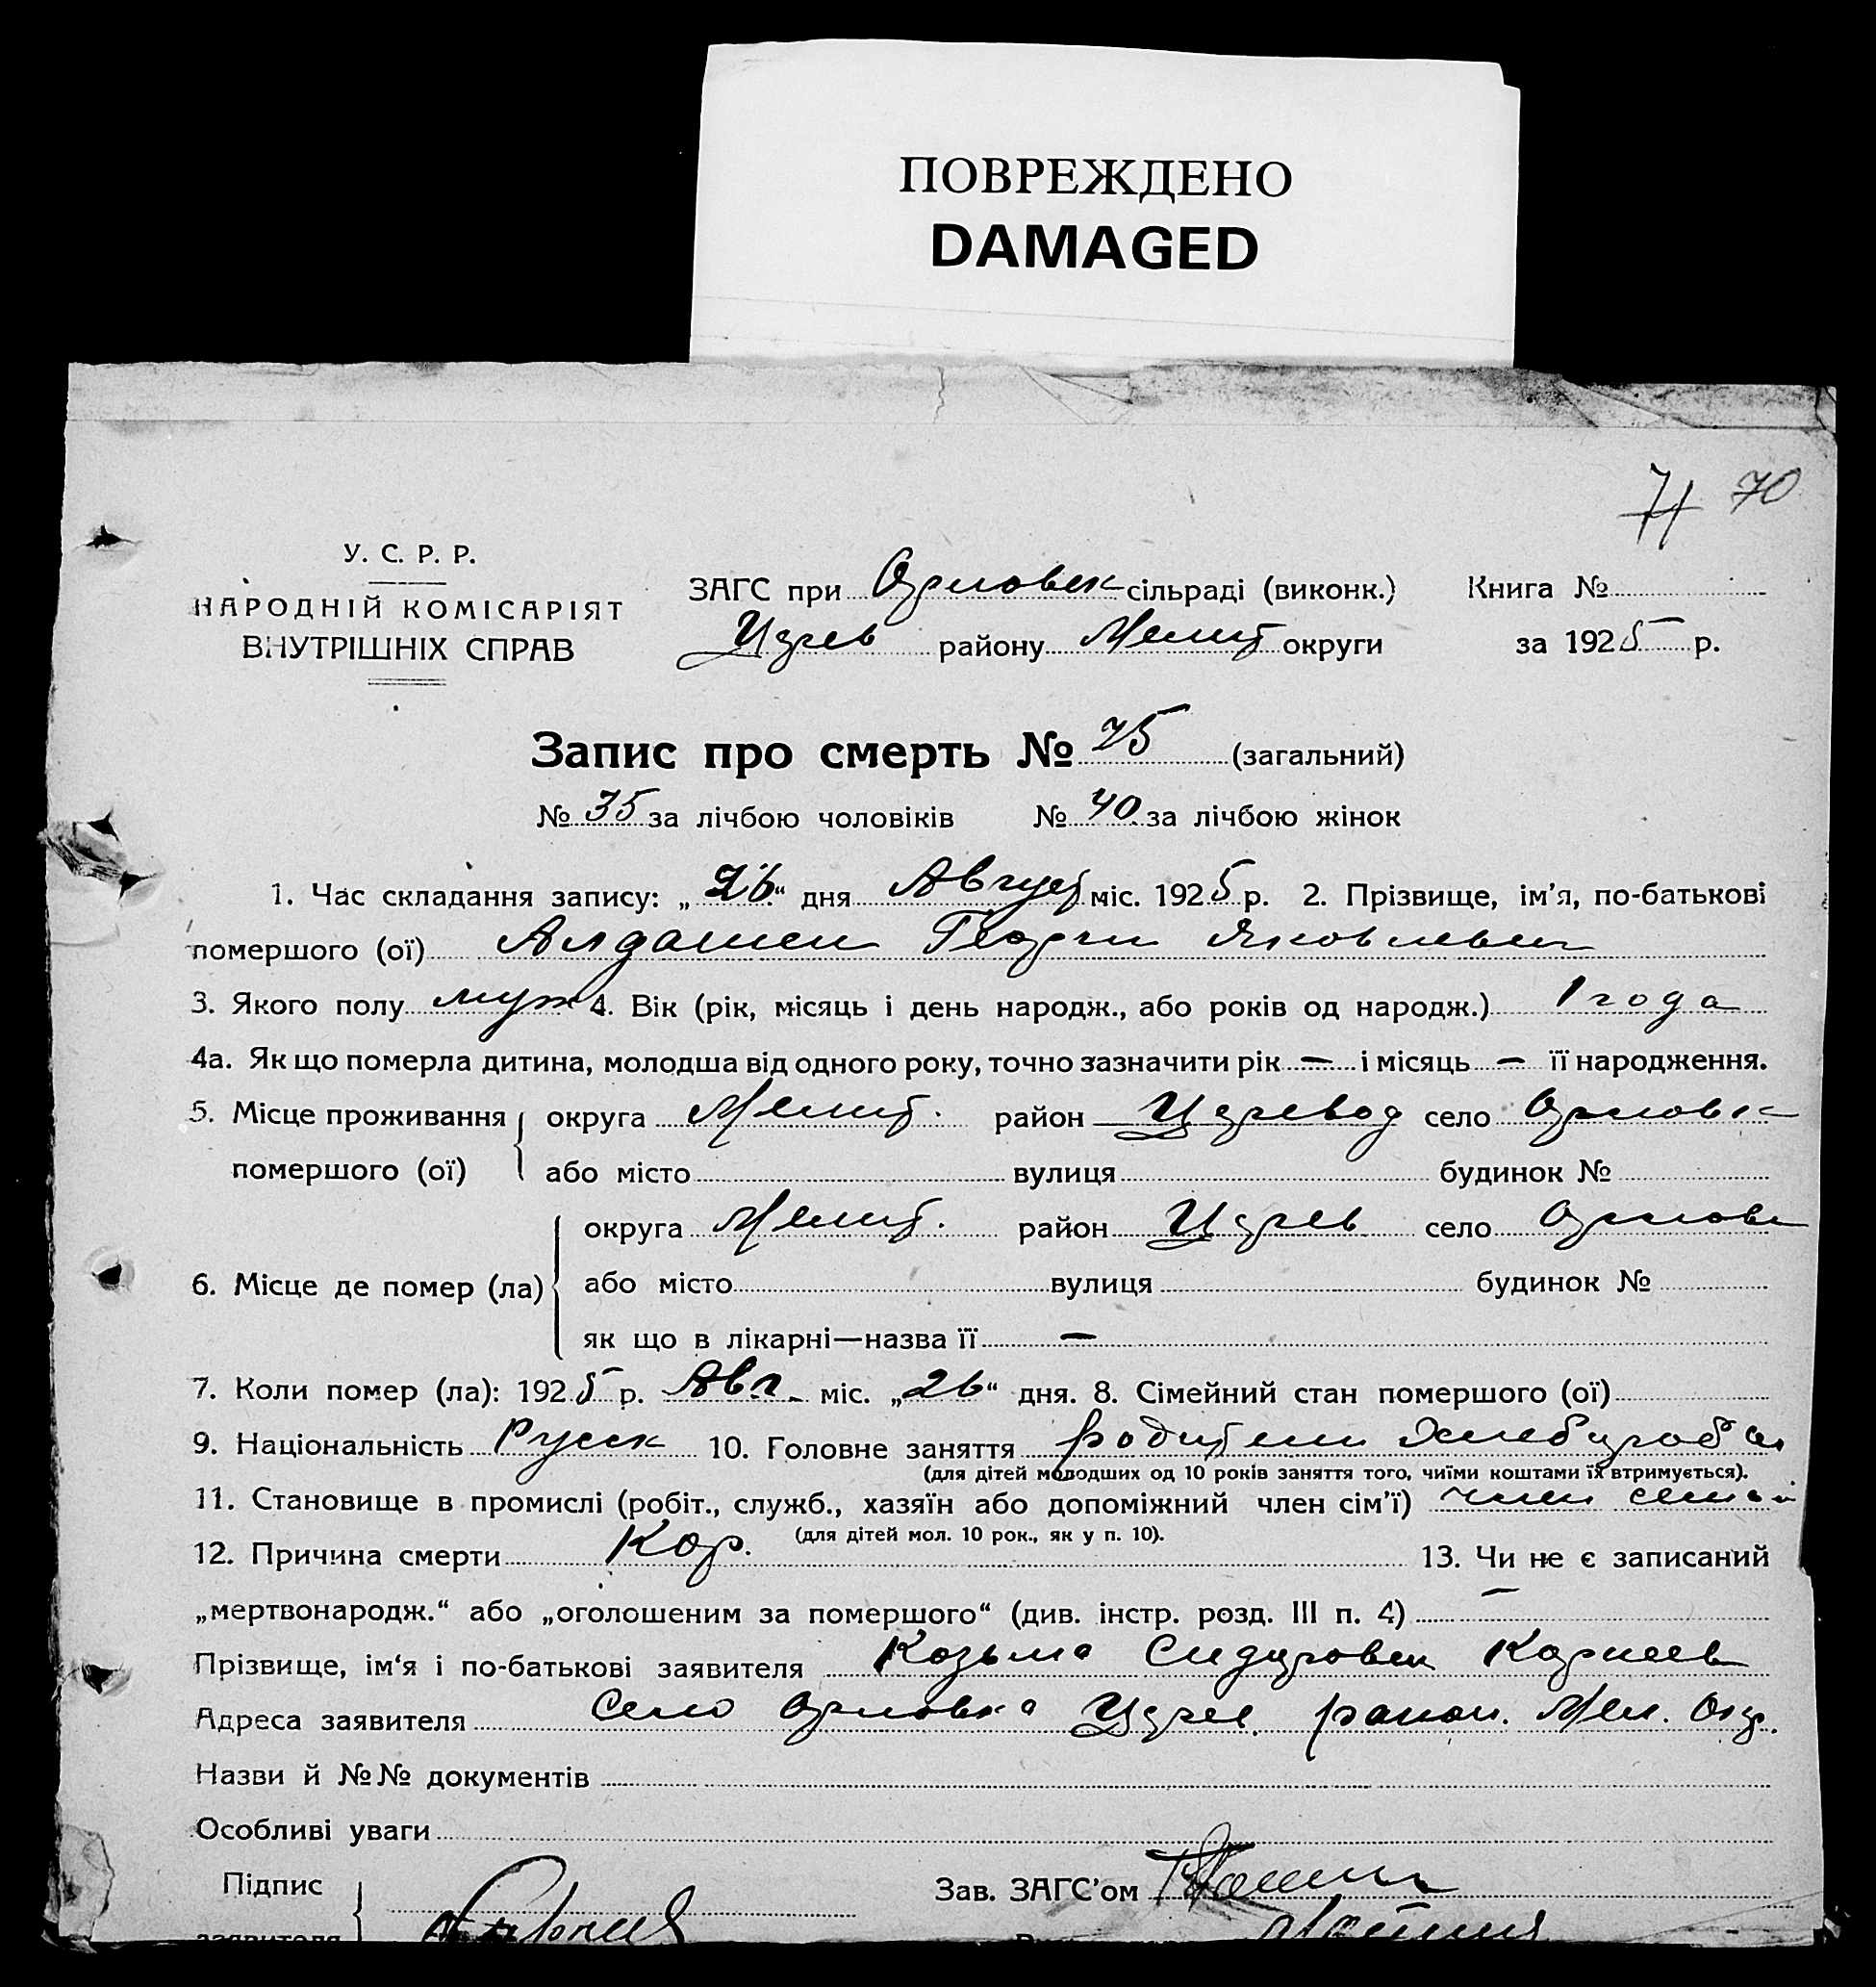 ПОВРЕЖДЕНО
DAMAGED
71 70
У. С. Р. Р.
НАРОДНІЙ КОМІСАРІЯТ
ВНУТРІШНІХ СПРАВ
ЗАГС при Орловск сільраді (виконк.) Книга №
району Мелит округи за 1925 р.
Запис про смерть № 75 (загальний)
№ 35 за лічбою чоловіків № 40 за лічбою жінок
1. Час складання запису: „26“ дня Август міс. 1925 р. 2. Прізвище, ім'я, по-батькові
помершого (ої) Георги Яковлевич
3. Якого полу муж 4. Вік (рік, місяць і день народж., або років од народж.) 1 года
4а. Як що померла дитина, молодша від одного року, точно зазначити рік — і місяць — її народження.
5. Місце проживання помершого (ої) округа Мелит. район село Орловк
або місто вулиця будинок №
6. Місце де помер (ла) округа Мелит. район село Орловк
або місто вулиця будинок №
як що в лікарні—назва її —
7. Коли помер (ла): 1925 р. Авг. міс. „26“ дня. 8. Сімейний стан помершого (ої)
9. Національність Русск 10. Головне заняття родители
(для дітей молодших од 10 років заняття того, чиїми коштами їх втримується).
11. Становище в промислі (робіт., служб., хазяїн або допоміжний член сім'ї) член семьи
(для дітей мол. 10 рок., як у п. 10).
12. Причина смерти Кор. 13. Чи не є записаний
„мертвонародж.“ або „оголошеним за помершого“ (див. інстр. розд. III п. 4) —
Прізвище, ім'я і по-батькові заявителя Козьма Сидорович Корнеев
Адреса заявителя Село Орловка район. Мел. Окр.
Назви й №№ документів
Особливі уваги
Підпис заявителя
Зав. ЗАГС'ом